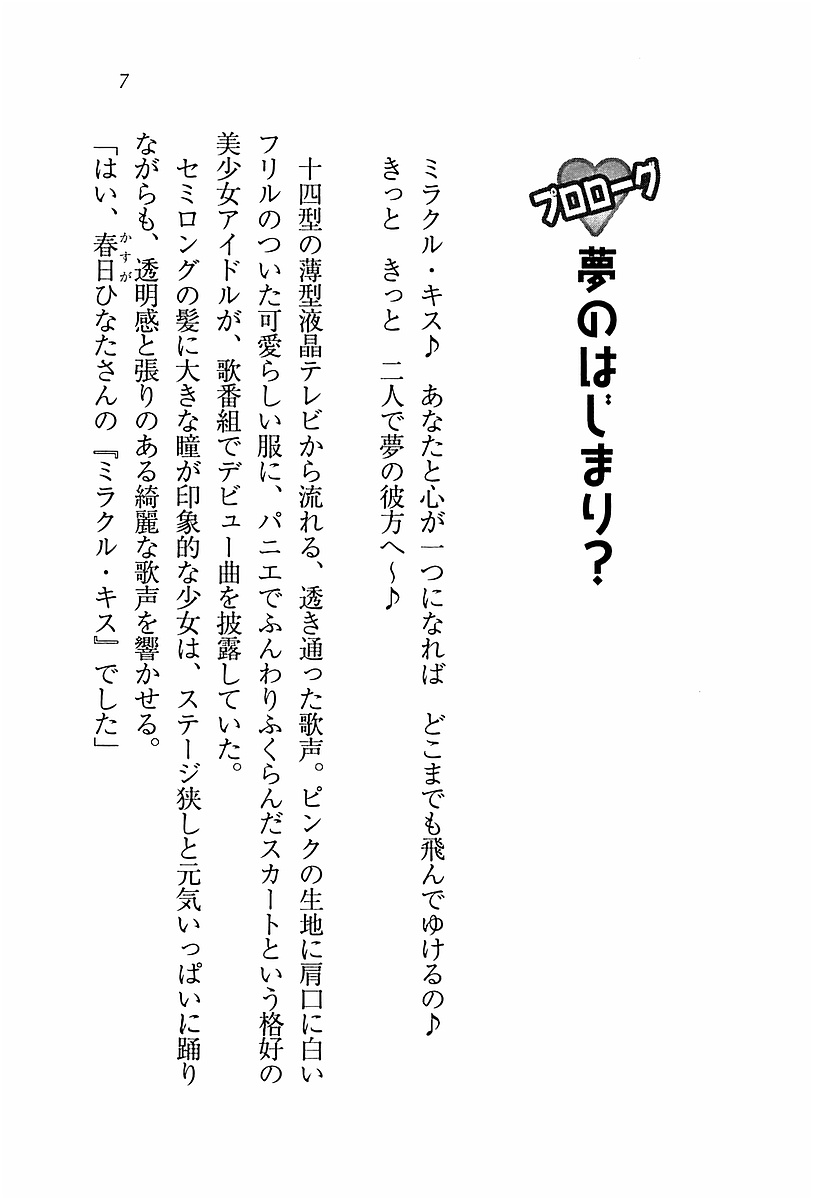 プロローグ
夢のはじまり？
ミラクル・キス♪　あなたと心が一つになれば　どこまでも飛んでゆけるの♪
きっと　きっと　二人で夢の彼方へ～♪
十四型の薄型液晶テレビから流れる、透き通った歌声。ピンクの生地に肩口に白い
フリルのついた可愛らしい服に、パニエでふんわりふくらんだスカートという格好の
美少女アイドルが、歌番組でデビュー曲を披露していた。
セミロングの髪に大きな瞳が印象的な少女は、ステージ狭しと元気いっぱいに踊り
ながらも、透明感と張りのある綺麗な歌声を響かせる。
「はい、春日ひなたさんの『ミラクル・キス』でした」
かすが
7